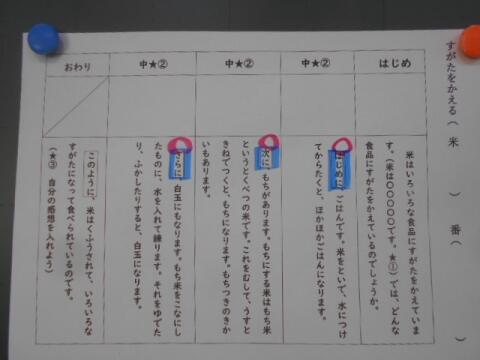 すがたをかえる（ 米 ） 番（ ）
はじめ
米はいろいろな食品にすがたをかえていま
す。（米は〇〇〇〇〇です。★①では、どんな
食品にすがたをかえているのでしょうか。
中★②
はじめに、ごはんです。米をといで、水につけ
てからたくと、ほかほかごはんになります。
中★②
次に、もちがあります。もちにする米はもち米
というとくべつの米です。これをむして、うすと
きねでつくと、もちになります。もちつきのきか
いもあります。
中★②
さらに、白玉にもなります。もち米をこなにし
たものに、水を入れて練ります。それをゆでた
り、ふかしたりすると、白玉になります。
おわり
このように、米はくふうされて、いろいろな
すがたになって食べられているのです。
（★③ 自分の感想を入れよう）